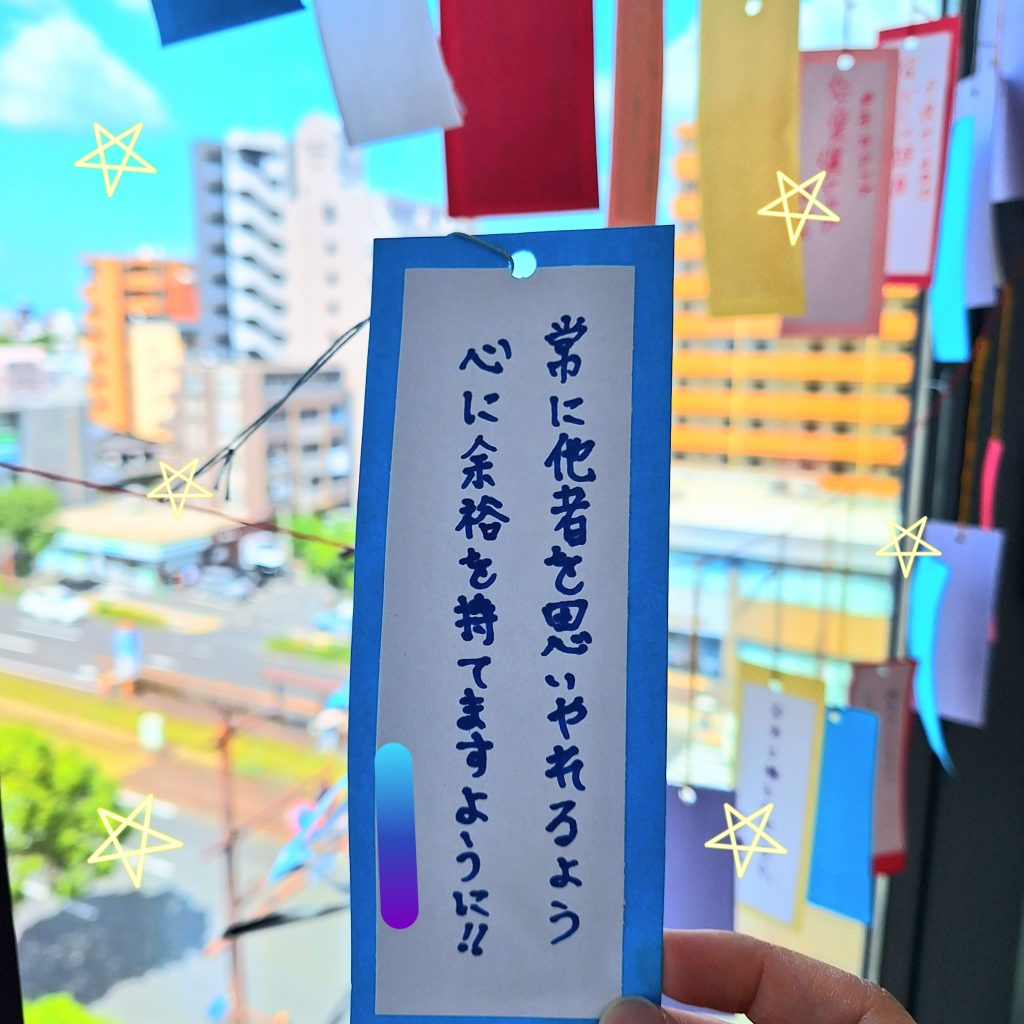 常に他者を思いやれるよう
心に余裕を持てますように!!